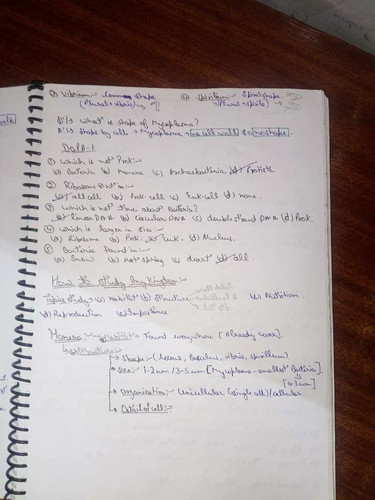 ③ Vibrium:- comma shape ④ Spirillum:- Spiral shape
(Plural → vibrio) (Plural → Spirilla)
Q:1) What is shape of Mycoplasma?
A:1) Shape by cell → Mycoplasma → no cell wall so no shape.
DOLA-1
① Which is not Prok:-
(a) Bacteria (b) Monera (c) Archaebacteria (d) Protista
② Ribosome is in:-
(a) all cell (b) Prok. cell (c) Euk. cell (d) none.
③ Which is not true about Bacteria?
(a) Linear DNA (b) Circular DNA (c) double strand DNA (d) Prok.
④ Which is larger in size:-
(a) Ribosome (b) Prok. (c) Euk. (d) Nucleus.
⑤ Bacteria found in:-
(a) Snow (b) hot spring (c) desert (d) all.
How to study any Kingdom:-
Topics study → (a) Habitat (b) Structure (c) Nutrition
(d) Reproduction (e) Importance
Monera:- (a) Habitat:- Found everywhere [Already cover]
(b) Structure:-
→ Shape:- (Coccus, Bacillus, vibrio, spirillum)
→ Size:- 1-2um / 3-5um [Mycoplasma - smallest Bacteria]
→ Organisation:- Unicellular (single cell) / cellular.
→ Detail of cell:-